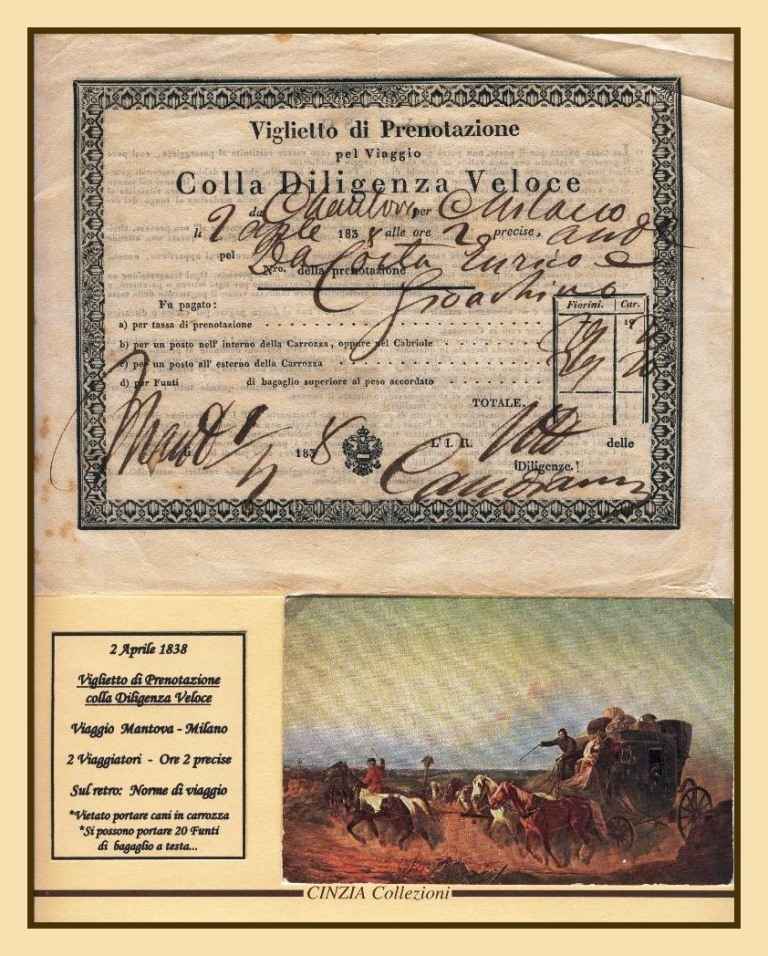 Viglietto di Prenotazione
pel Viaggio
Colla Diligenza Veloce
da Mantova per Milano
li 2 aple 1838 alle ore 2 precise,
pel Da Costa Enrico e
Nro. della prenotazione
Gioachino
Fu pagato:
Fiorini. Car.
a) per tassa di prenotazione
b) per un posto nell' interno della Carrozza, oppure nel Cabriole
c) per un posto all' esterno della Carrozza
d) per Funti di bagaglio superiore al peso accordato
TOTALE
1838 L'I. R. delle
Diligenze.
2 Aprile 1838
Viglietto di Prenotazione
colla Diligenza Veloce
Viaggio Mantova - Milano
2 Viaggiatori - Ore 2 precise
Sul retro: Norme di viaggio
*Vietato portare cani in carrozza
*Si possono portare 20 Funti
di bagaglio a testa...
CINZIA Collezioni